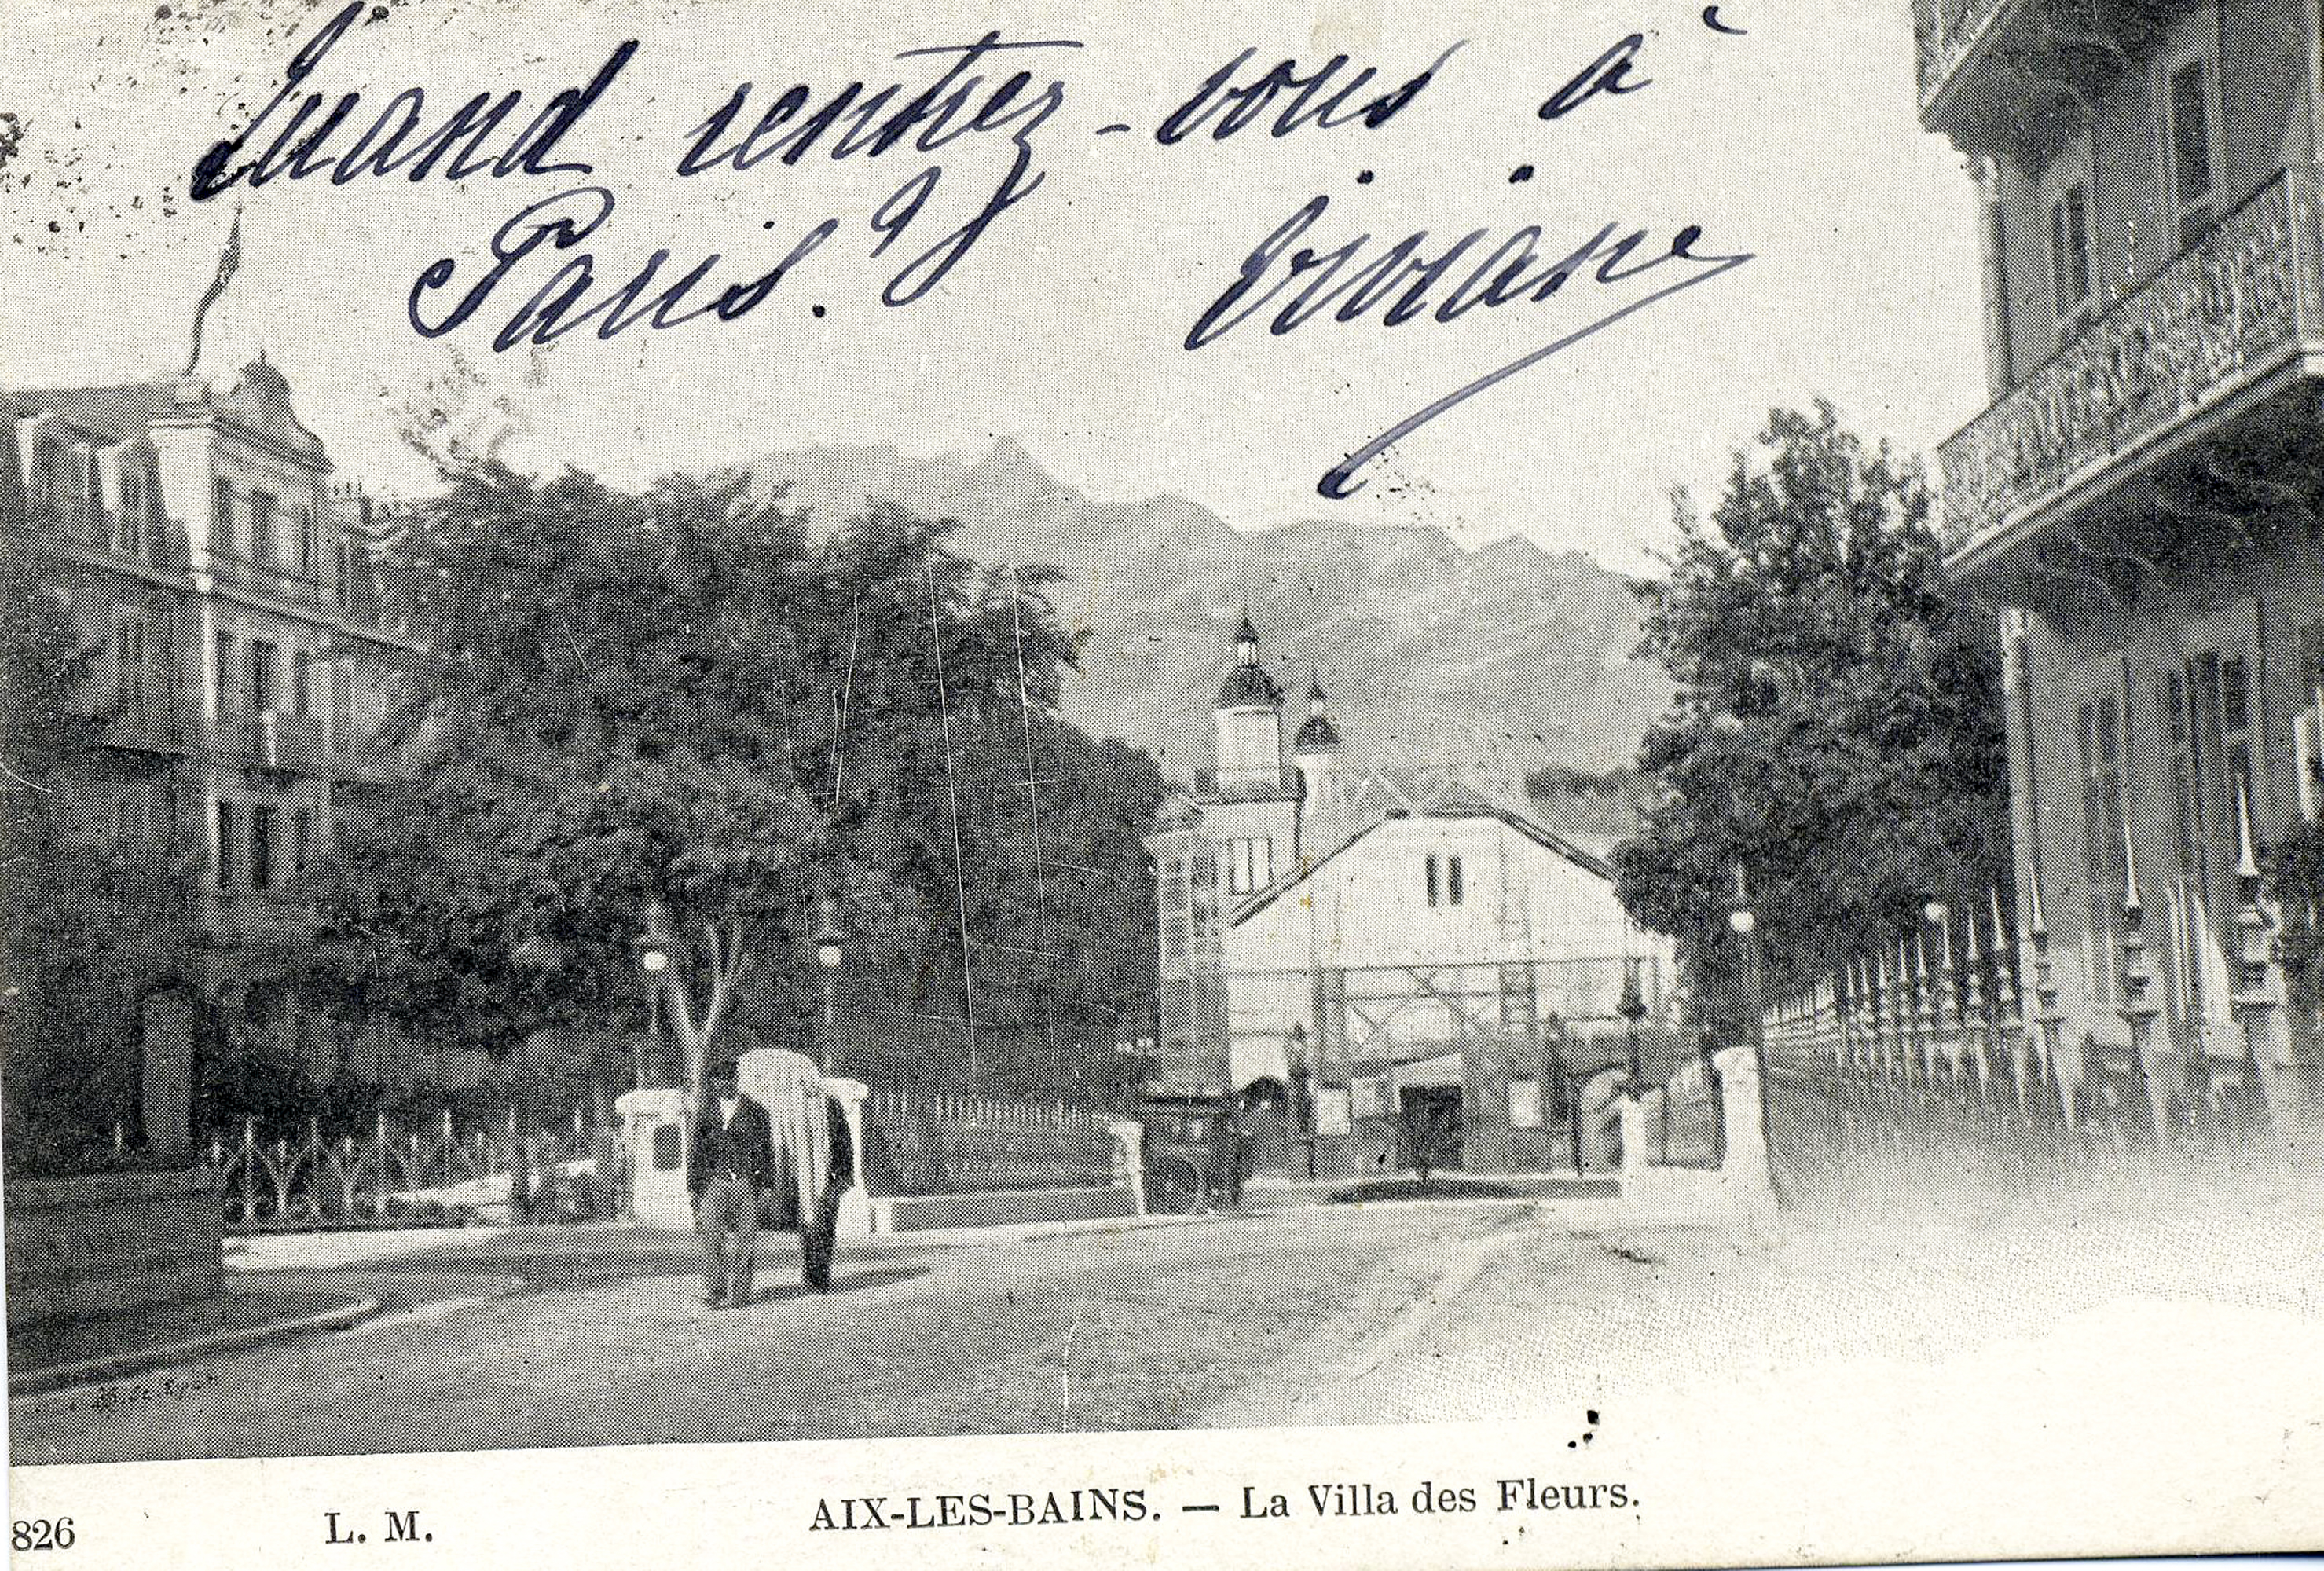 Quand rentrez-vous à
Paris.? Viviane
826 L. M. AIX-LES-BAINS. — La Villa des Fleurs.